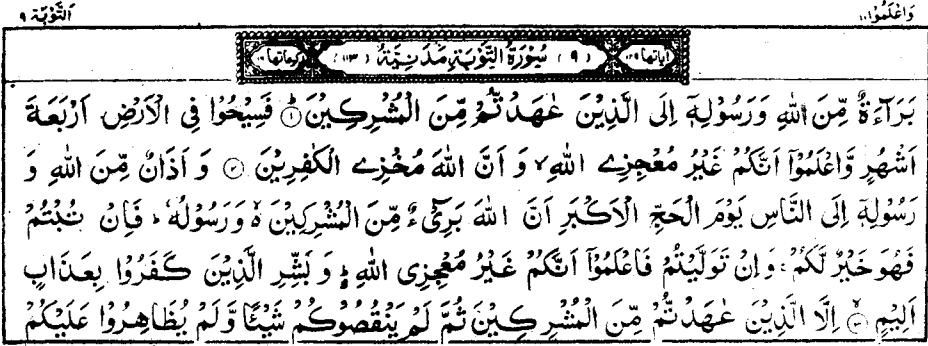 وَاعْلَمُوْٓا ١٠ اَلتَّوْبَة ٩
اٰیاتھا ١٢٩ (٩) سُوْرَةُ التَّوْبَةِ مَدَنِيَّةٌ (١١٣) رکوعاتھا ١٦
بَرَآءَةٌ مِّنَ اللّٰهِ وَرَسُوْلِهٖٓ اِلَى الَّذِيْنَ عٰهَدْتُّمْ مِّنَ الْمُشْرِكِيْنَ ؕ﴿١﴾ فَسِيْحُوْا فِى الْاَرْضِ اَرْبَعَةَ
اَشْهُرٍ وَّاعْلَمُوْٓا اَنَّكُمْ غَيْرُ مُعْجِزِى اللّٰهِ ۙ وَ اَنَّ اللّٰهَ مُخْزِى الْكٰفِرِيْنَ ﴿٢﴾ وَ اَذَانٌ مِّنَ اللّٰهِ وَ
رَسُوْلِهٖٓ اِلَى النَّاسِ يَوْمَ الْحَجِّ الْاَكْبَرِ اَنَّ اللّٰهَ بَرِىْٓءٌ مِّنَ الْمُشْرِكِيْنَ ۙ۬ وَرَسُوْلُهٗ ؕ فَاِنْ تُبْتُمْ
فَهُوَ خَيْرٌ لَّكُمْ ۚ وَاِنْ تَوَلَّيْتُمْ فَاعْلَمُوْٓا اَنَّكُمْ غَيْرُ مُعْجِزِى اللّٰهِ ؕ وَ بَشِّرِ الَّذِيْنَ كَفَرُوْا بِعَذَابٍ
اَلِيْمٍ ۙ﴿٣﴾ اِلَّا الَّذِيْنَ عٰهَدْتُّمْ مِّنَ الْمُشْرِكِيْنَ ثُمَّ لَمْ يَنْقُصُوْكُمْ شَيْئًا وَّلَمْ يُظَاهِرُوْا عَلَيْكُمْ